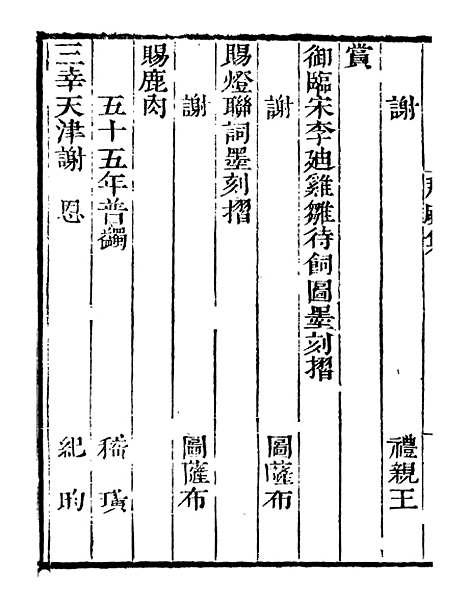 謝 禮親王
賞
御臨宋李廸雞雛待飼圖墨刻摺
謝 圖薩布
賜燈聯詞墨刻摺
謝 圖薩布
賜鹿肉
五十五年普蠲 嵇璜
三幸天津謝 恩 紀昀